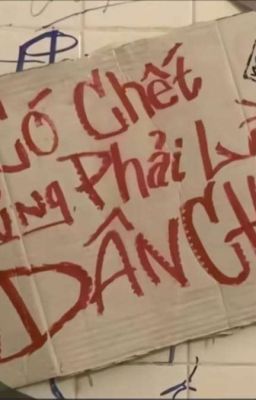 Có Chết
ũng Phải Là
DÂN CH